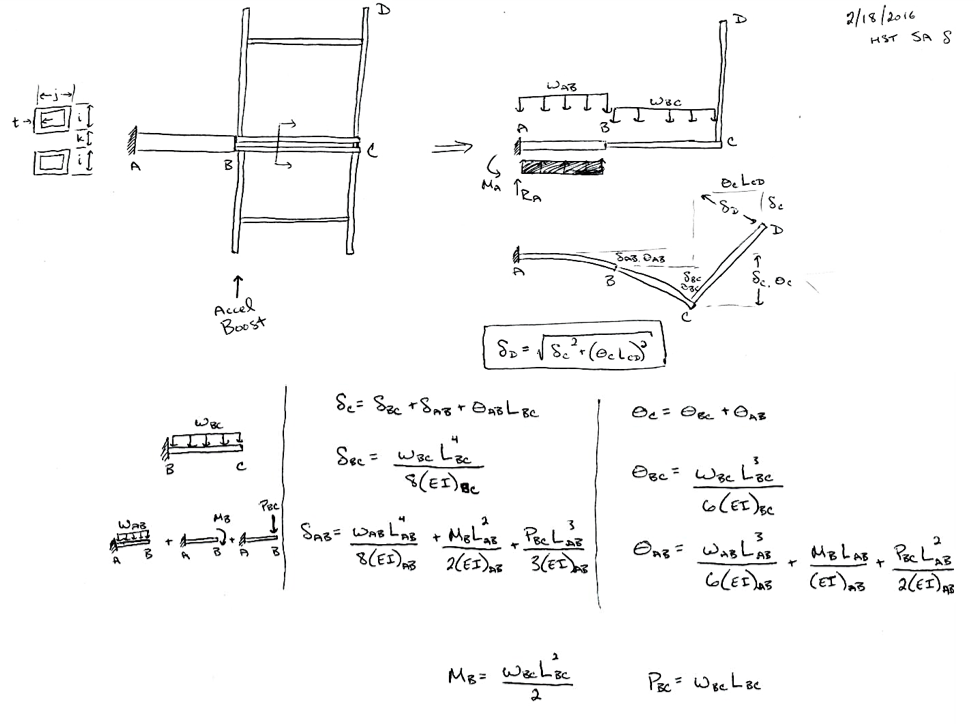 2/18/2016
HST SA δ
D
j
t
i
k
i
A
B
C
Accel
Boost
⇒
D
W_AB
W_BC
A
B
C
M_A
R_A
θ_C L_CD
δ_D
δ_C
D
A
δ_AB, θ_AB
B
δ_BC
θ_BC
δ_C, θ_C
C
δ_D = √(δ_C² + (θ_C L_CD)²)
W_BC
B
C
W_AB
A
B
+
M_B
A
B
+
P_BC
A
B
δ_C = δ_BC + δ_AB + θ_AB L_BC
δ_BC = W_BC L_BC⁴ / 8(EI)_BC
δ_AB = W_AB L_AB⁴ / 8(EI)_AB + M_B L_AB² / 2(EI)_AB + P_BC L_AB³ / 3(EI)_AB
θ_C = θ_BC + θ_AB
θ_BC = W_BC L_BC³ / 6(EI)_BC
θ_AB = W_AB L_AB³ / 6(EI)_AB + M_B L_AB / (EI)_AB + P_BC L_AB² / 2(EI)_AB
M_B = W_BC L_BC² / 2
P_BC = W_BC L_BC